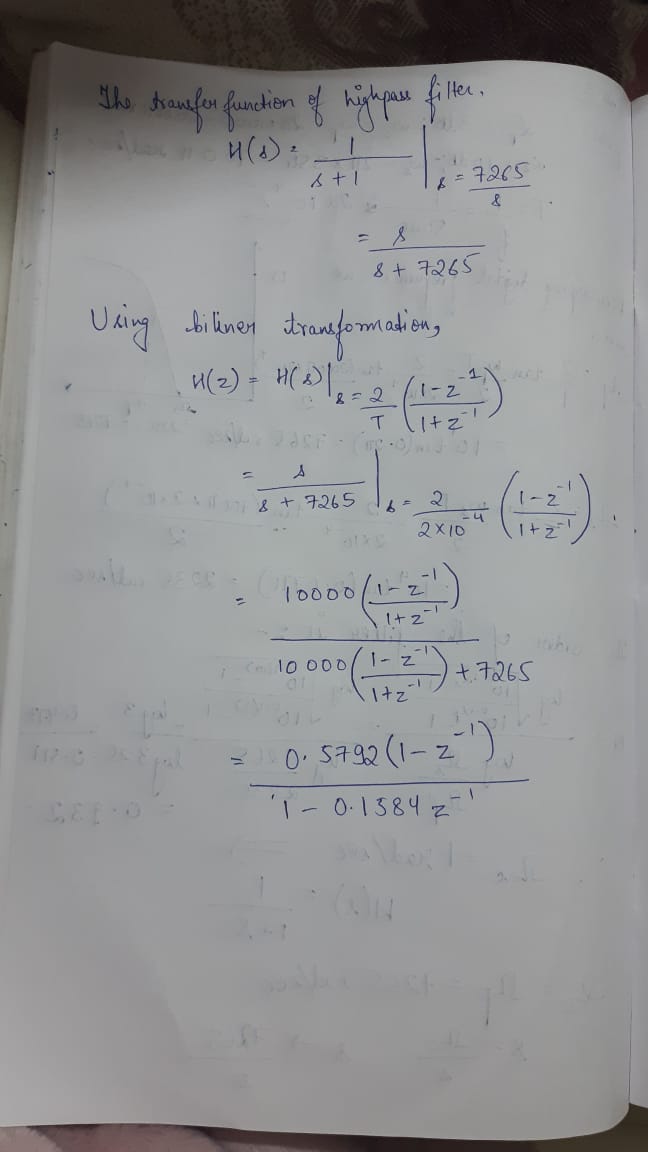 The transfer function of highpass filter.
H(s) = 1 / (s + 1) | s = 7265 / s
= s / (s + 7265)
Using biliner transformation,
H(z) = H(s) | s = 2/T ( (1 - z^-1) / (1 + z^-1) )
= s / (s + 7265) | s = 2 / (2 × 10^-4) ( (1 - z^-1) / (1 + z^-1) ) .
= 10000 ( (1 - z^-1) / (1 + z^-1) ) / ( 10000 ( (1 - z^-1) / (1 + z^-1) ) + 7265 )
= 0.5792 (1 - z^-1) / (1 - 0.1584 z^-1)